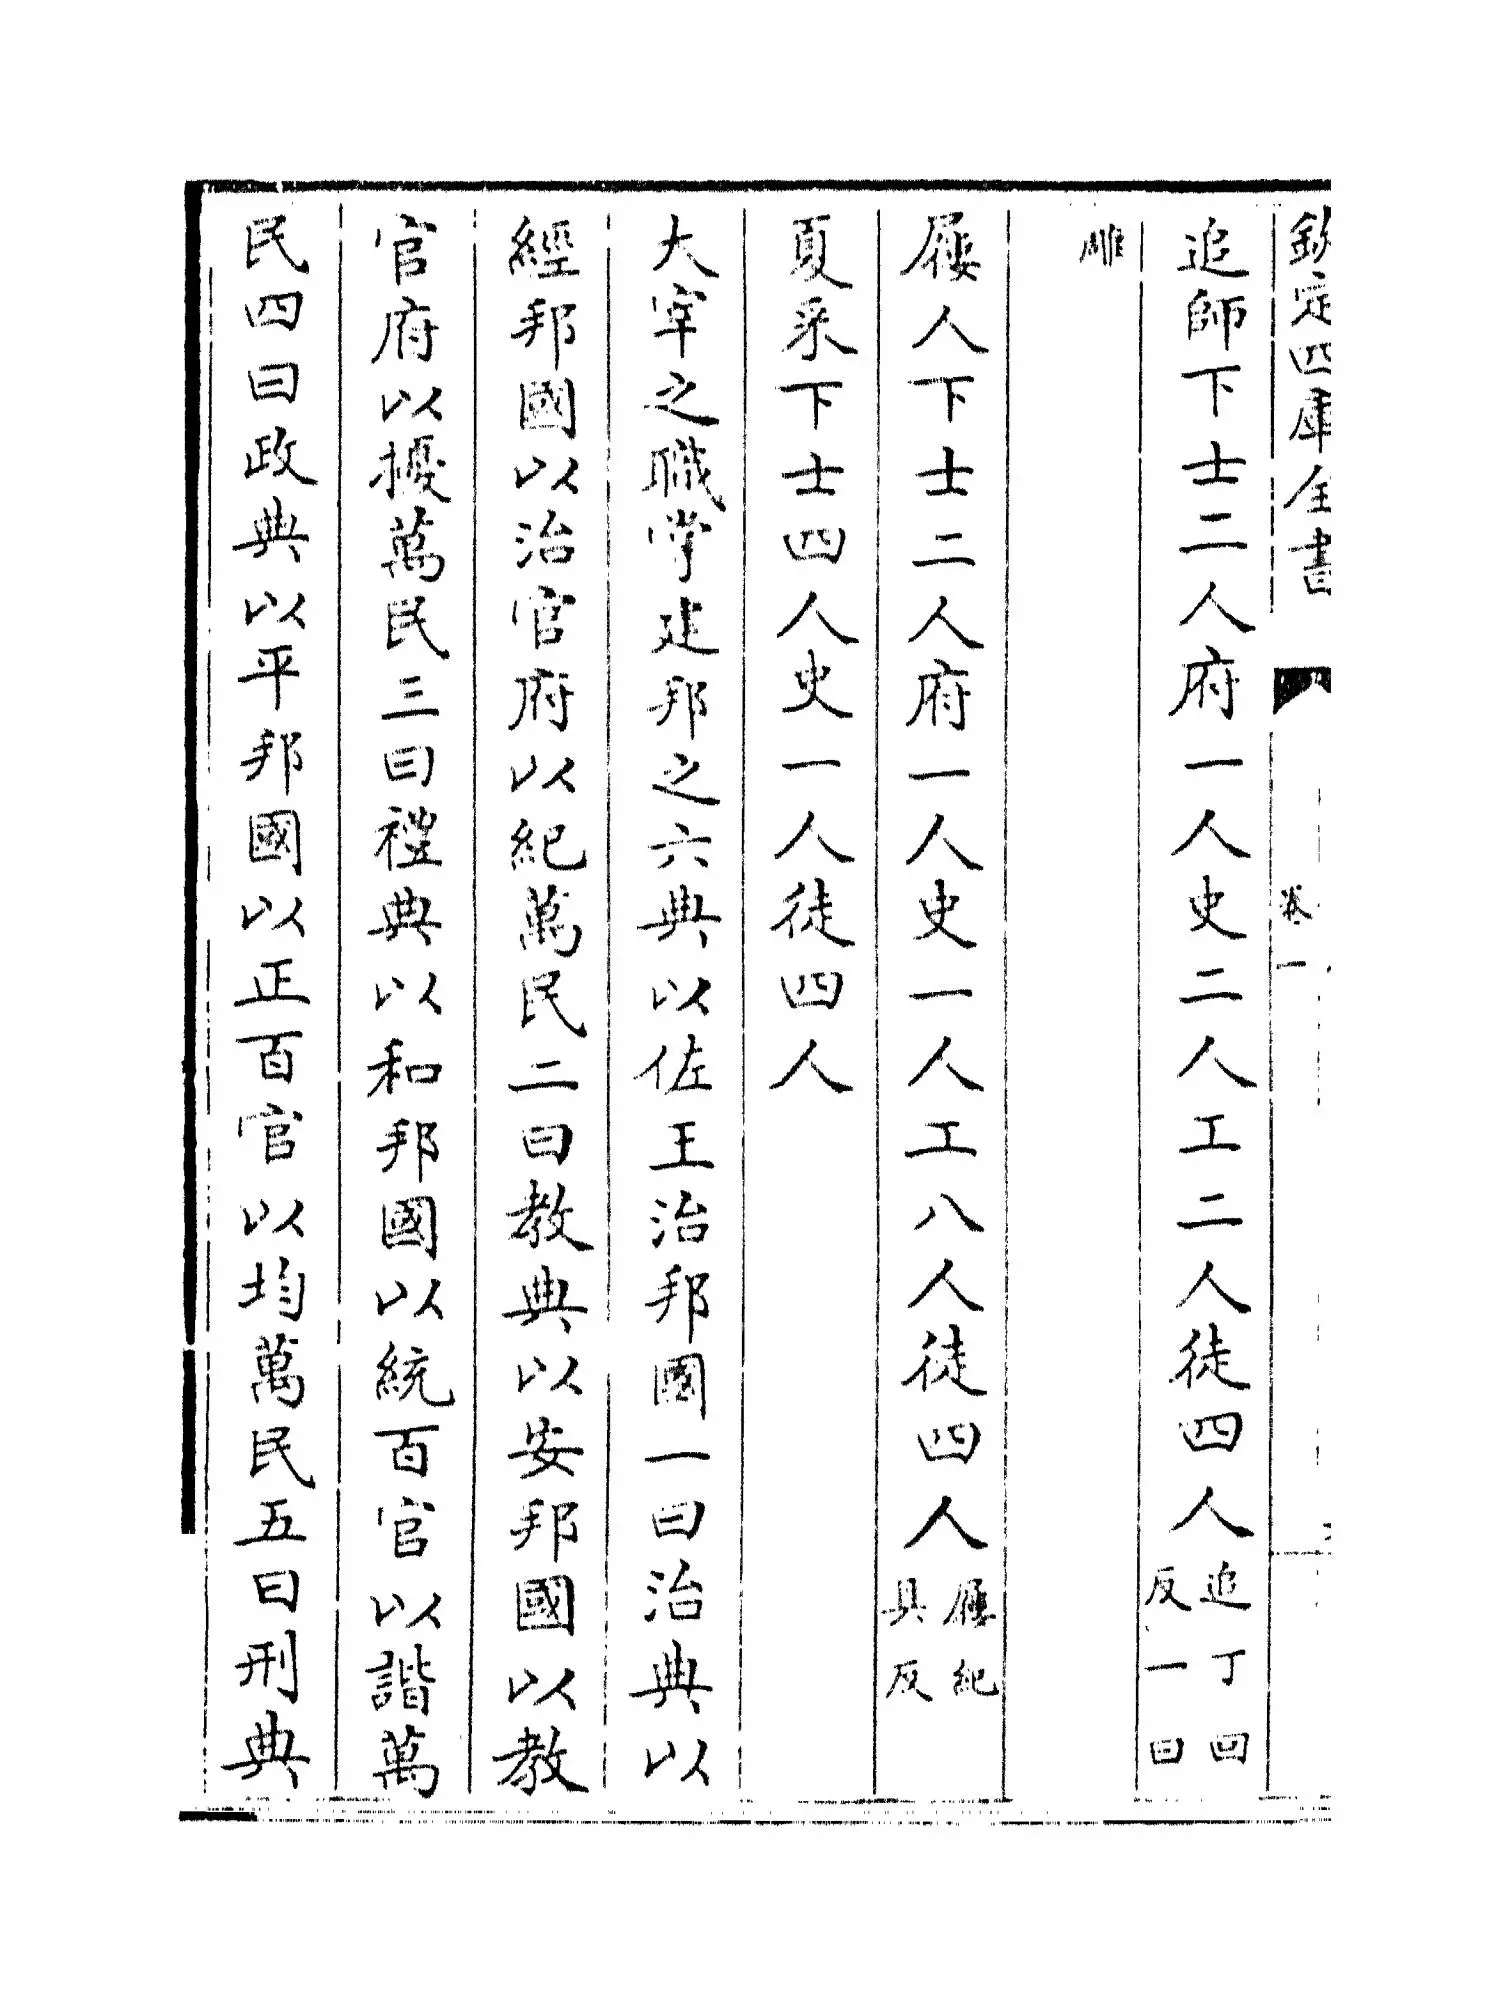 欽定四庫全書
卷一
追師下士二人府一人史二人工二人徒四人追丁回反一曰
雕
屨人下士二人府一人史一人工八人徒四人屨紀具反
夏采下士四人史一人徒四人
大宰之職掌建邦之六典以佐王治邦國一曰治典以
經邦國以治官府以紀萬民二曰教典以安邦國以教
官府以擾萬民三曰禮典以和邦國以統百官以諧萬
民四曰政典以平邦國以正百官以均萬民五曰刑典